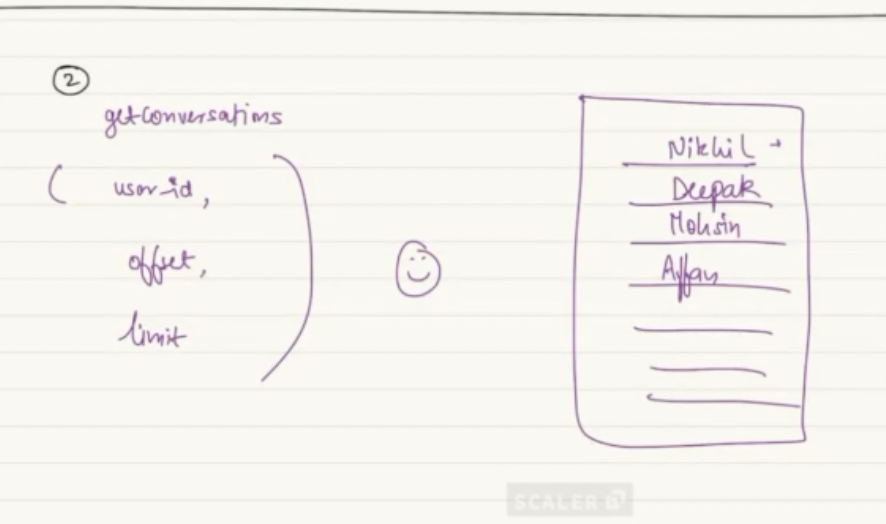 ②
getConversations
( user-id,
offset,
limit )
Nikhil →
Deepak
Mohsin
Affan
SCALER